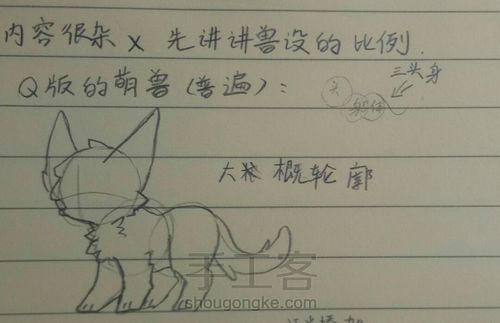 内容很杂 x 先讲讲兽设的比例.
Q版的萌兽(普遍):
三头身
头
身体
大概轮廓
手工客
shougongke.com